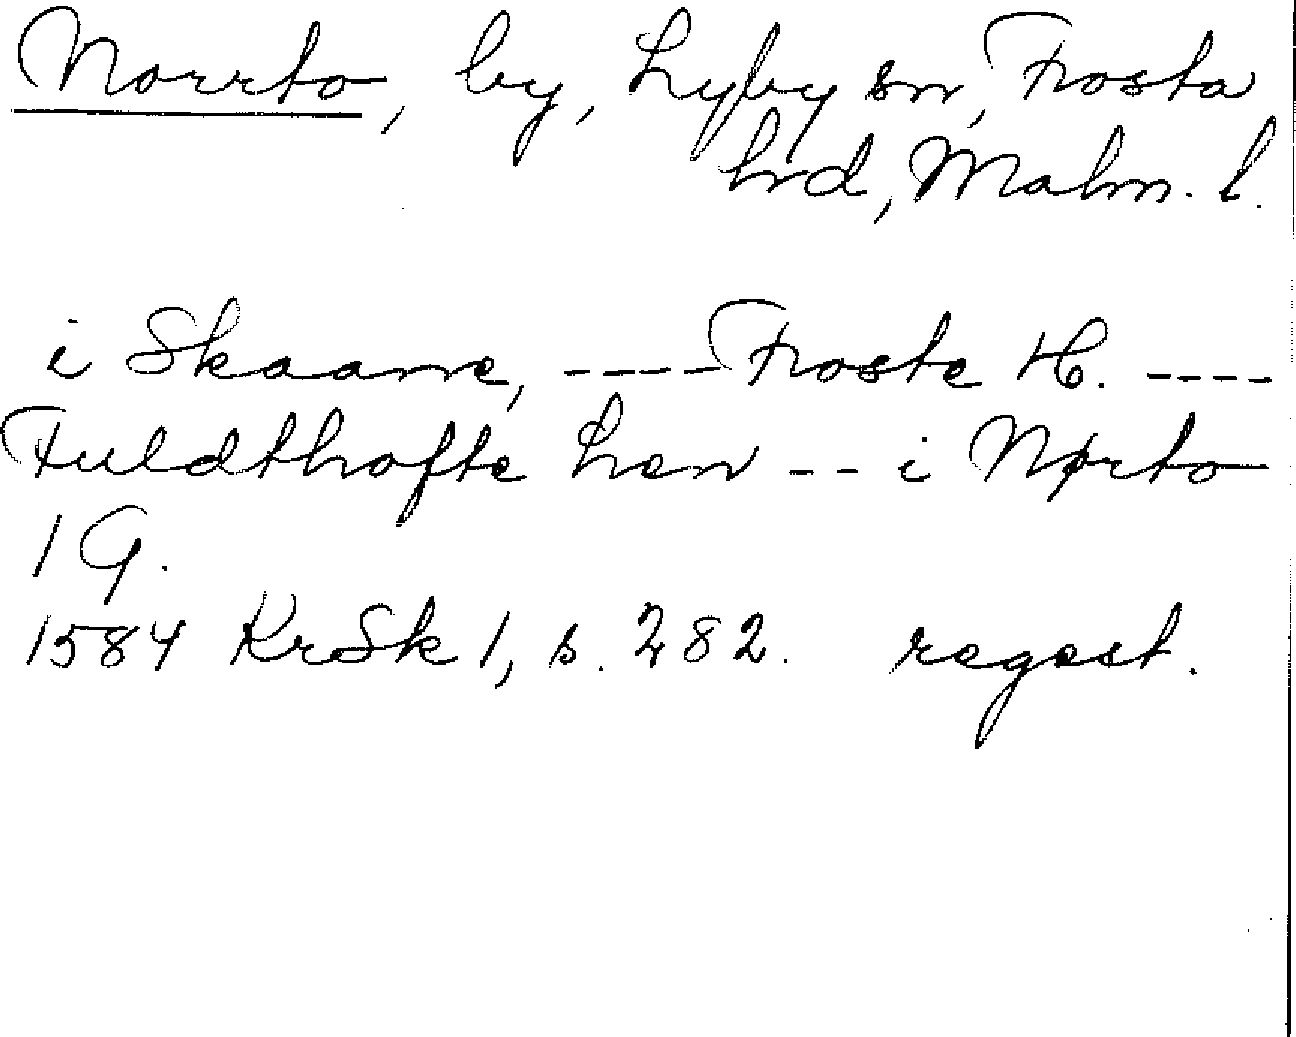 Norrto, by, Lyby sn, Frosta
hrd, Malm. l.
i Skaane, ---- Froste H. ----
Fuldthofte Len -- i Nørto
1 G.
1584 KrSk 1, s. 282. regest.